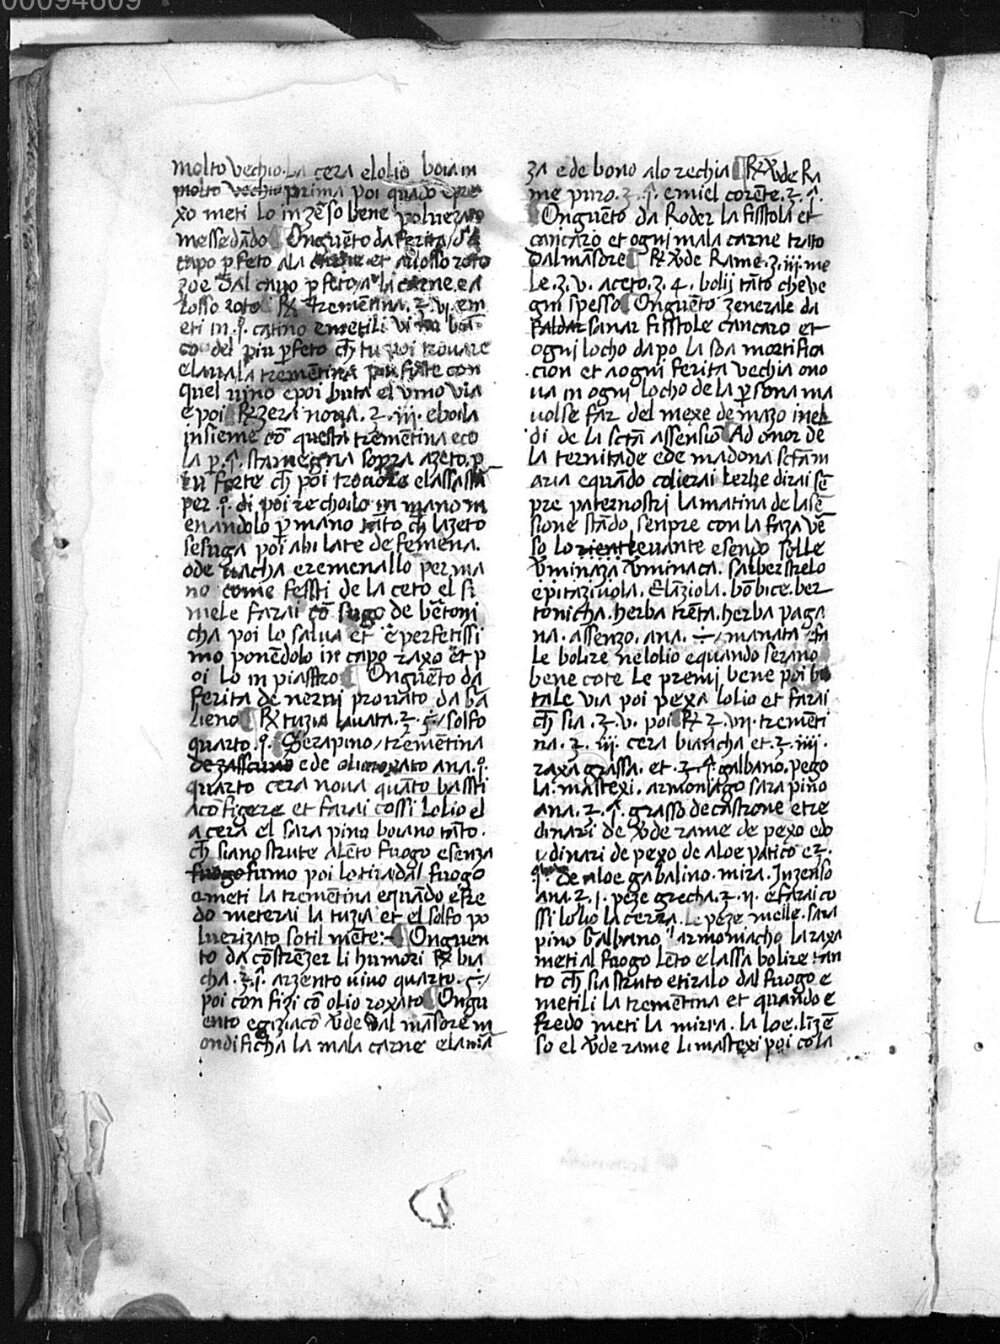 00094609
molto vechio. la cera elolio boia in
molto vechio prima poi quādo epre
xo meti lo inzēso bene polverizao
messedādo ¶ Onguēto da ferita /
capo ꝑfeto ala carne et alosso roto
zoe dal capo ꝑfeto / a la carne. e a
losso roto ¶ ℞ trementina. ʒ. vi. em
eti in .j. catino emetili vino biā
co del piu ꝑfeto cħ tu poi trovare
elavala trementina piu fiate con
quel vino epoi buta el vino via
e poi ¶ ℞ zera nova. ʒ. iii. eboila
insieme cō questa trementina eco
la ꝑ .j. stamegna sopra azeto. p
iu forte cħ poi trovare elassalla
per .j. di poi rechoilo in mano m
enandolo ꝑ mano tāto cħ lazeto
sesuga poi abi late de femena.
ode vacha eremenallo per ma
no come fessti de la ceto el si
mele farai cō sugo de bētoni
cha poi lo salva et e perfetissi
mo ponēdolo in capo raxo et p
oi lo in piasstro ¶ Onguēto da
ferita de nervi provato da ga
lieno ¶ ℞ tuzia lavata. ʒ. ꝭ / solfo
quarto .j. ¶ Serapino / trēmentina
de zasscuno e de olio roxato ana .j.
quarto cera nova quāto bassti
acō figere et farai cossi lolio el
a cera el sara pino boiano tāto.
cħ siano strute alēto fuogo esenza
fuogo fumo poi lo tira dal fuogo
emeti la trēmentina equādo efre
do meterai la tuzia et el solfo po
luerizato sotil mēte: ¶ Onguen
to da cōstrēzer li humori ℞ bia
cha. ʒ. j. arzento vivo quarto. ꝭ /
poi con fizi cō olio roxato ¶ Ongu
ento egiziacō v̄de dal māsore m
ondifiche la mala carne elama
za ede bono alo rechia ¶ ℞ v̄de Ra
me puro. ʒ. j. emiel corēte. ʒ. j.
¶ Onguēto da Roder la fisstola et
cancaro et ogni mala carne trato
dal masore ¶ ℞ v̄de Rame. ʒ. iii. me
le. ʒ. v. aceto. ʒ. 4. bolij tāto cheve
gni spesso ¶ Onguēto zenerale da
saldar sanar fisstole cancaro et
ogni locho da po la sua mortifica
cion et aogni ferita vechia ono
va in ogni locho de la ꝑsona ma
volse far del mexe de mazo inel
di de la sctā assensiō Ad onor de
la ternitade ede madona sctām
aria equādo colierai lerbe dirai sē
pre paternostri la matina de lasē
sione stādo senpre con la faza vē
so lo levante esendo solle
v̄minaza v̄minaca. salberstrelo
epitaziuola. Elāziola. bō bice. ber
tonicha. herba trēta. herba paga
na. assenzo. ana. ÷ / manata / fa
le bolire nelolio equando serano
bene cote le premi bene poi bu
tale via poi pexa lolio et farai
cħ sia. ʒ. v. poi ¶ ℞ ʒ. vii. trēmēti
na. ʒ. iii. cera biancha et. ʒ. iiii.
raxa grassa. et. ʒ. j. galbano. pego
la. mastexi. armoniago sara pino
ana. ʒ. j. grasso de castrone etre
dinari de v̄de rame de pexo edo
v dinari de pexo de aloe patico e ʒ.
de aloe gabalino. mira. Inzenso
ana. ʒ. j. peze grecha. ʒ. ii. efarai co
ssi lolio la cerra. Le peze melle. sara
pino galbano. armoniacho la raxa
meti al fuogo lēto elassa bolire tan
to cħ sia struto etiralo dal fuogo e
metili la trementina et quando e
fredo meti la mirra. la loe. lizē
so el v̄de rame li mastexi poi cola